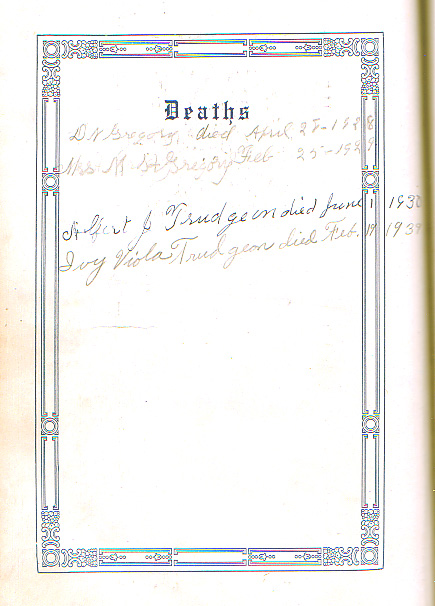 Deaths
D N Gregory, died April 28-1928
Mrs. M. Gregory Feb 25-1929
Albert J Trudgeon died June 1 1930
Ivy Viola Trudgeon died Feb. 19 1939